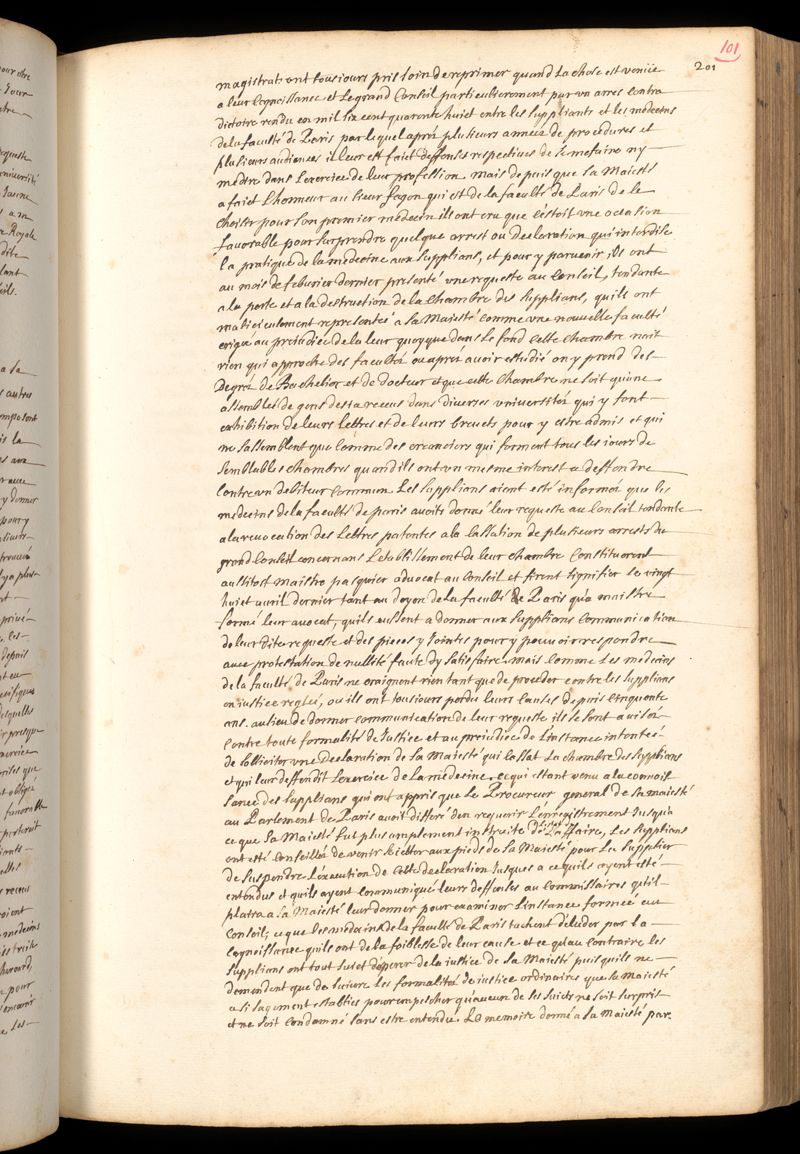 101
201
magistrats ont tousiours pris soin de reprimer quand la chose est venüe
a leur cognoissance et Le grand Conseil particulierement par un arrest contra
dictoire rendu en mil six cent quarente huict entre les suppliants et les medecins
de la faculté de Paris par lequel apres plusieurs années de procedures et
plusieurs audiences il leur est faict deffenses respectives de se mesfaire ny
medire dans L'exercice de leur profession. mais depuis que sa Maiesté
a faict L'honneur au sieur fagon qui est de la faculté de Paris de le
choisir pour son premier medecin ils ont cru que c'estoit une occasion
favorable pour surprendre quelque arrest ou Declaration qui interdise
la pratique de la medecine aux supplians, et pour y parvenir ils ont
au mois de feburier dernier presenté une requeste au Conseil, tendante
a la perte et a la destruction de la Chambre des supplians, quils ont
malicieusement representée a sa Maiesté comme une nouvelle faculté
erigée au preiudice de la leur quoyque dans le fond cette chambre nait
rien qui approche des facultez ou apres avoir estudié on y prend des
Degrez de Bachelier et de docteur et que cette Chambre ne soit qu'une
assemblée de gens desia receus dans diverses universitez qui y font
exhibition de leurs lettres et de leurs brevets pour y estre admis et qui
ne s'assemblent que comme des creanciers qui forment tous les iours de
semblables chambres quand ils ont un mesme interest a deffendre
Contre un debiteur commun. Les supplians aiant esté informez que les
medecins de la faculté de paris avoits donné leur requeste au Conseil tendante
a la revocation des Lettres patentes a la Cassation de plusieurs arrests du
grand Conseil concernans L'establissement de leur chambre Constituerent
aussitost maistre pasquier advocat au Conseil et firent signifier le vingt
huict avril dernier tant au doyen de la faculté de Paris qu'a maistre
formé leur avocat, quils eussent a donner aux supplians Communication
de leur dite requeste et des pieces y Jointes pour y pouvoir respondre
avec protestation de nullité faute d'y satisfaire. mais comme Les medecins
de la faculté de Paris ne craignent rien tant que de proceder contre les supplians
en iustice reglée, ou ils ont tousiours perdu leurs Causes depuis Cinquante
ans. au lieu de donner communication de leur requeste ils se sont avisez
Contre toute formalité de Justice et au preiudice de L'instance intentée
de solliciter une Declaration de sa Maiesté qui cassat La chambre des supplians
et qui leur deffendit L'exercice de La medecine. ce qui estant venu a la connois
sance des supplians qui ont appris que Le Procureur general de sa maiesté
au Parlement de Paris avoit differé d'en requerir L'enregistrement Jusqu'a
ce que sa Maiesté fut plus amplement instruite de L'estat de L'affaire, Les supplians
ont esté Conseillez de venir se ietter aux pieds de sa Maiesté pour La supplier
de suspendre L'execution de Cette declaration Jusques a ce quils ayent esté
entendus et quils ayent communiqué leurs deffenses au commissaires qu'il
plaira a sa Maiesté leur donner pour examiner L'instance formée au
Conseil; ce que les medecins de la faculté de Paris tachent d'eluder par la
Cognoissance quils ont de la foiblesse de leur cause et ce qu'au contraire les
supplians ont tout suiet d'esperer de la iustice de sa Maiesté puis quils ne
demandent que de suivre Les formalitez de iustice ordinaires que sa Maiesté
a si sagement establies pour empescher qu'aucun de ses suiets ne soit surpris
et ne soit condamné sans estre entendu. Le memoire donné a sa Maiesté par